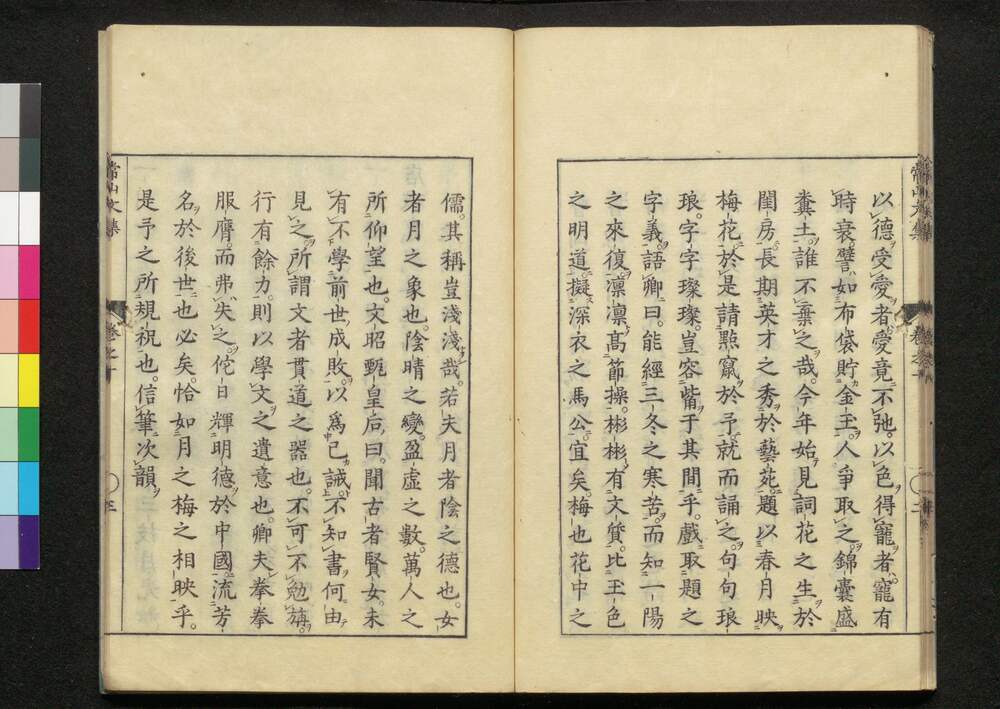 以德受愛者愛竟不弛以色得寵者寵有
時衰譬如布袋貯金玉人爭取之錦囊盛
糞土誰不棄之哉今年始見詞花之生於
閨房長期英才之秀於藝苑題以春月映
梅花於是請點竄於予就而誦之句句琅
琅字字璨璨豈容觜于其間乎戲取題之
字義語卿曰能經三冬之寒苦而知一陽
之來復凛凛高節操彬彬有文質比玉色
之明道擬深衣之馬公宜矣梅也花中之
常山文集
卷之一
二
儒其稱豈淺淺哉若夫月者陰之德也女
者月之象也陰晴之變盈虛之數萬人之
所仰望也文昭甄皇后曰聞古者賢女未
有不學前世成敗以爲己誡不知書何由
見之所謂文者貫道之器也不可不勉旃
行有餘力則以學文之遺意也卿夫拳拳
服膺而弗失之佗日輝明德於中國流芳
名於後世也必矣恰如月之梅之相映乎
是予之所規祝也信筆次韻
常山文集
卷之一
三